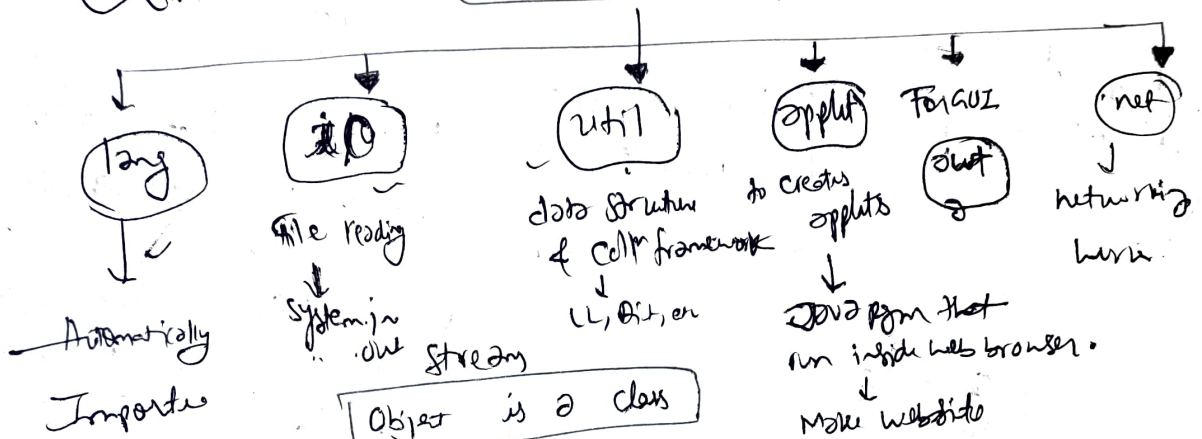 lang
Automatically
Importe
io
file reading
System.in
.. out
Stream
Object is a class
util
data structure
& Collⁿ framework
LL, Dit, etc
applet
to creates
applets
Java pgm that
run inside web browser.
Make website
For GUI
awt
net
networking